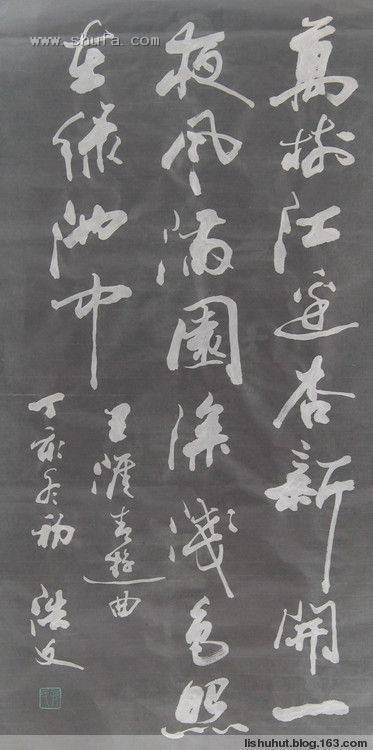 www.shufa.com
萬樹江邊杏新開一
夜風滿園深淺色照
在綠池中
王涯春遊曲
丁亥冬初 浩文
lishuhut.blog.163.com